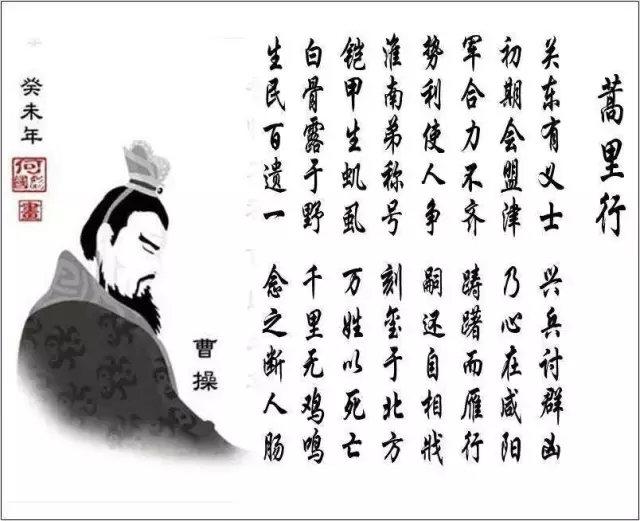 蒿里行
关东有义士 兴兵讨群凶
初期会盟津 乃心在咸阳
军合力不齐 踌躇而雁行
势利使人争 嗣还自相戕
淮南弟称号 刻玺于北方
铠甲生虮虱 万姓以死亡
白骨露于野 千里无鸡鸣
生民百遗一 念之断人肠
曹操
癸未年
何國
畫